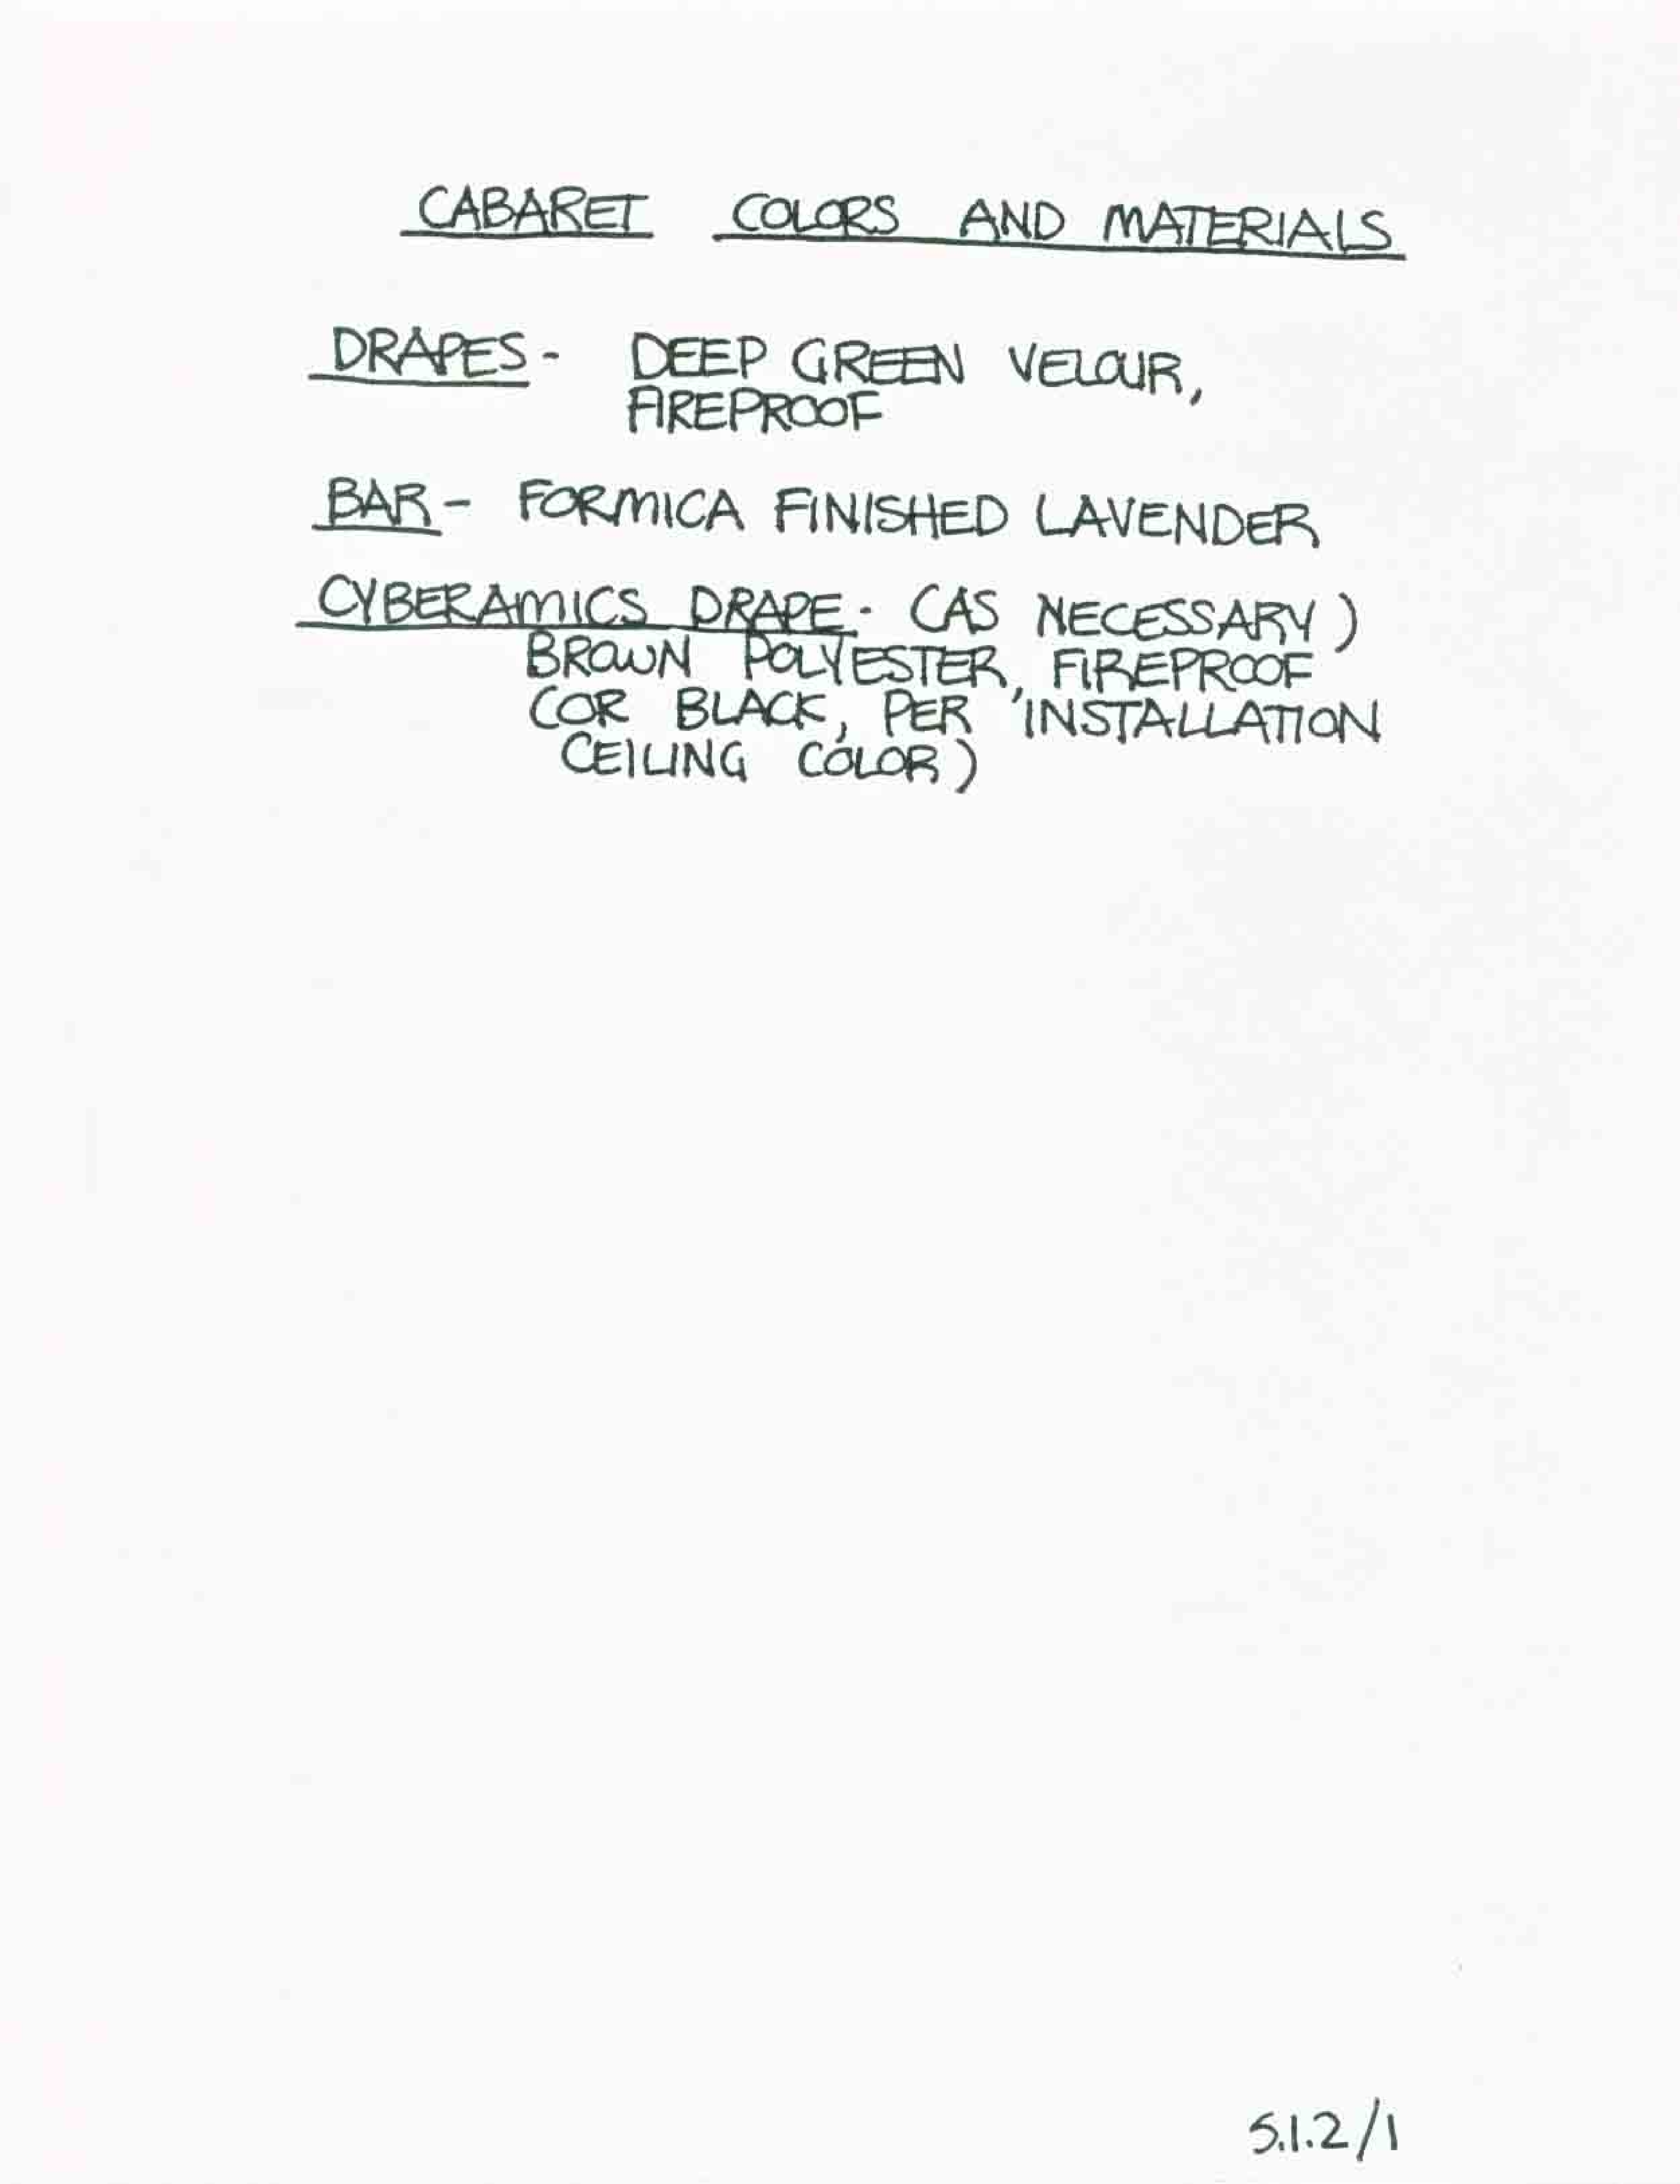 CABARET COLORS AND MATERIALS
DRAPES- DEEP GREEN VELOUR,
FIREPROOF
BAR- FORMICA FINISHED LAVENDER
CYBERAMICS DRAPE- (AS NECESSARY)
BROWN POLYESTER, FIREPROOF
(OR BLACK, PER INSTALLATION
CEILING COLOR)
5.1.2/1